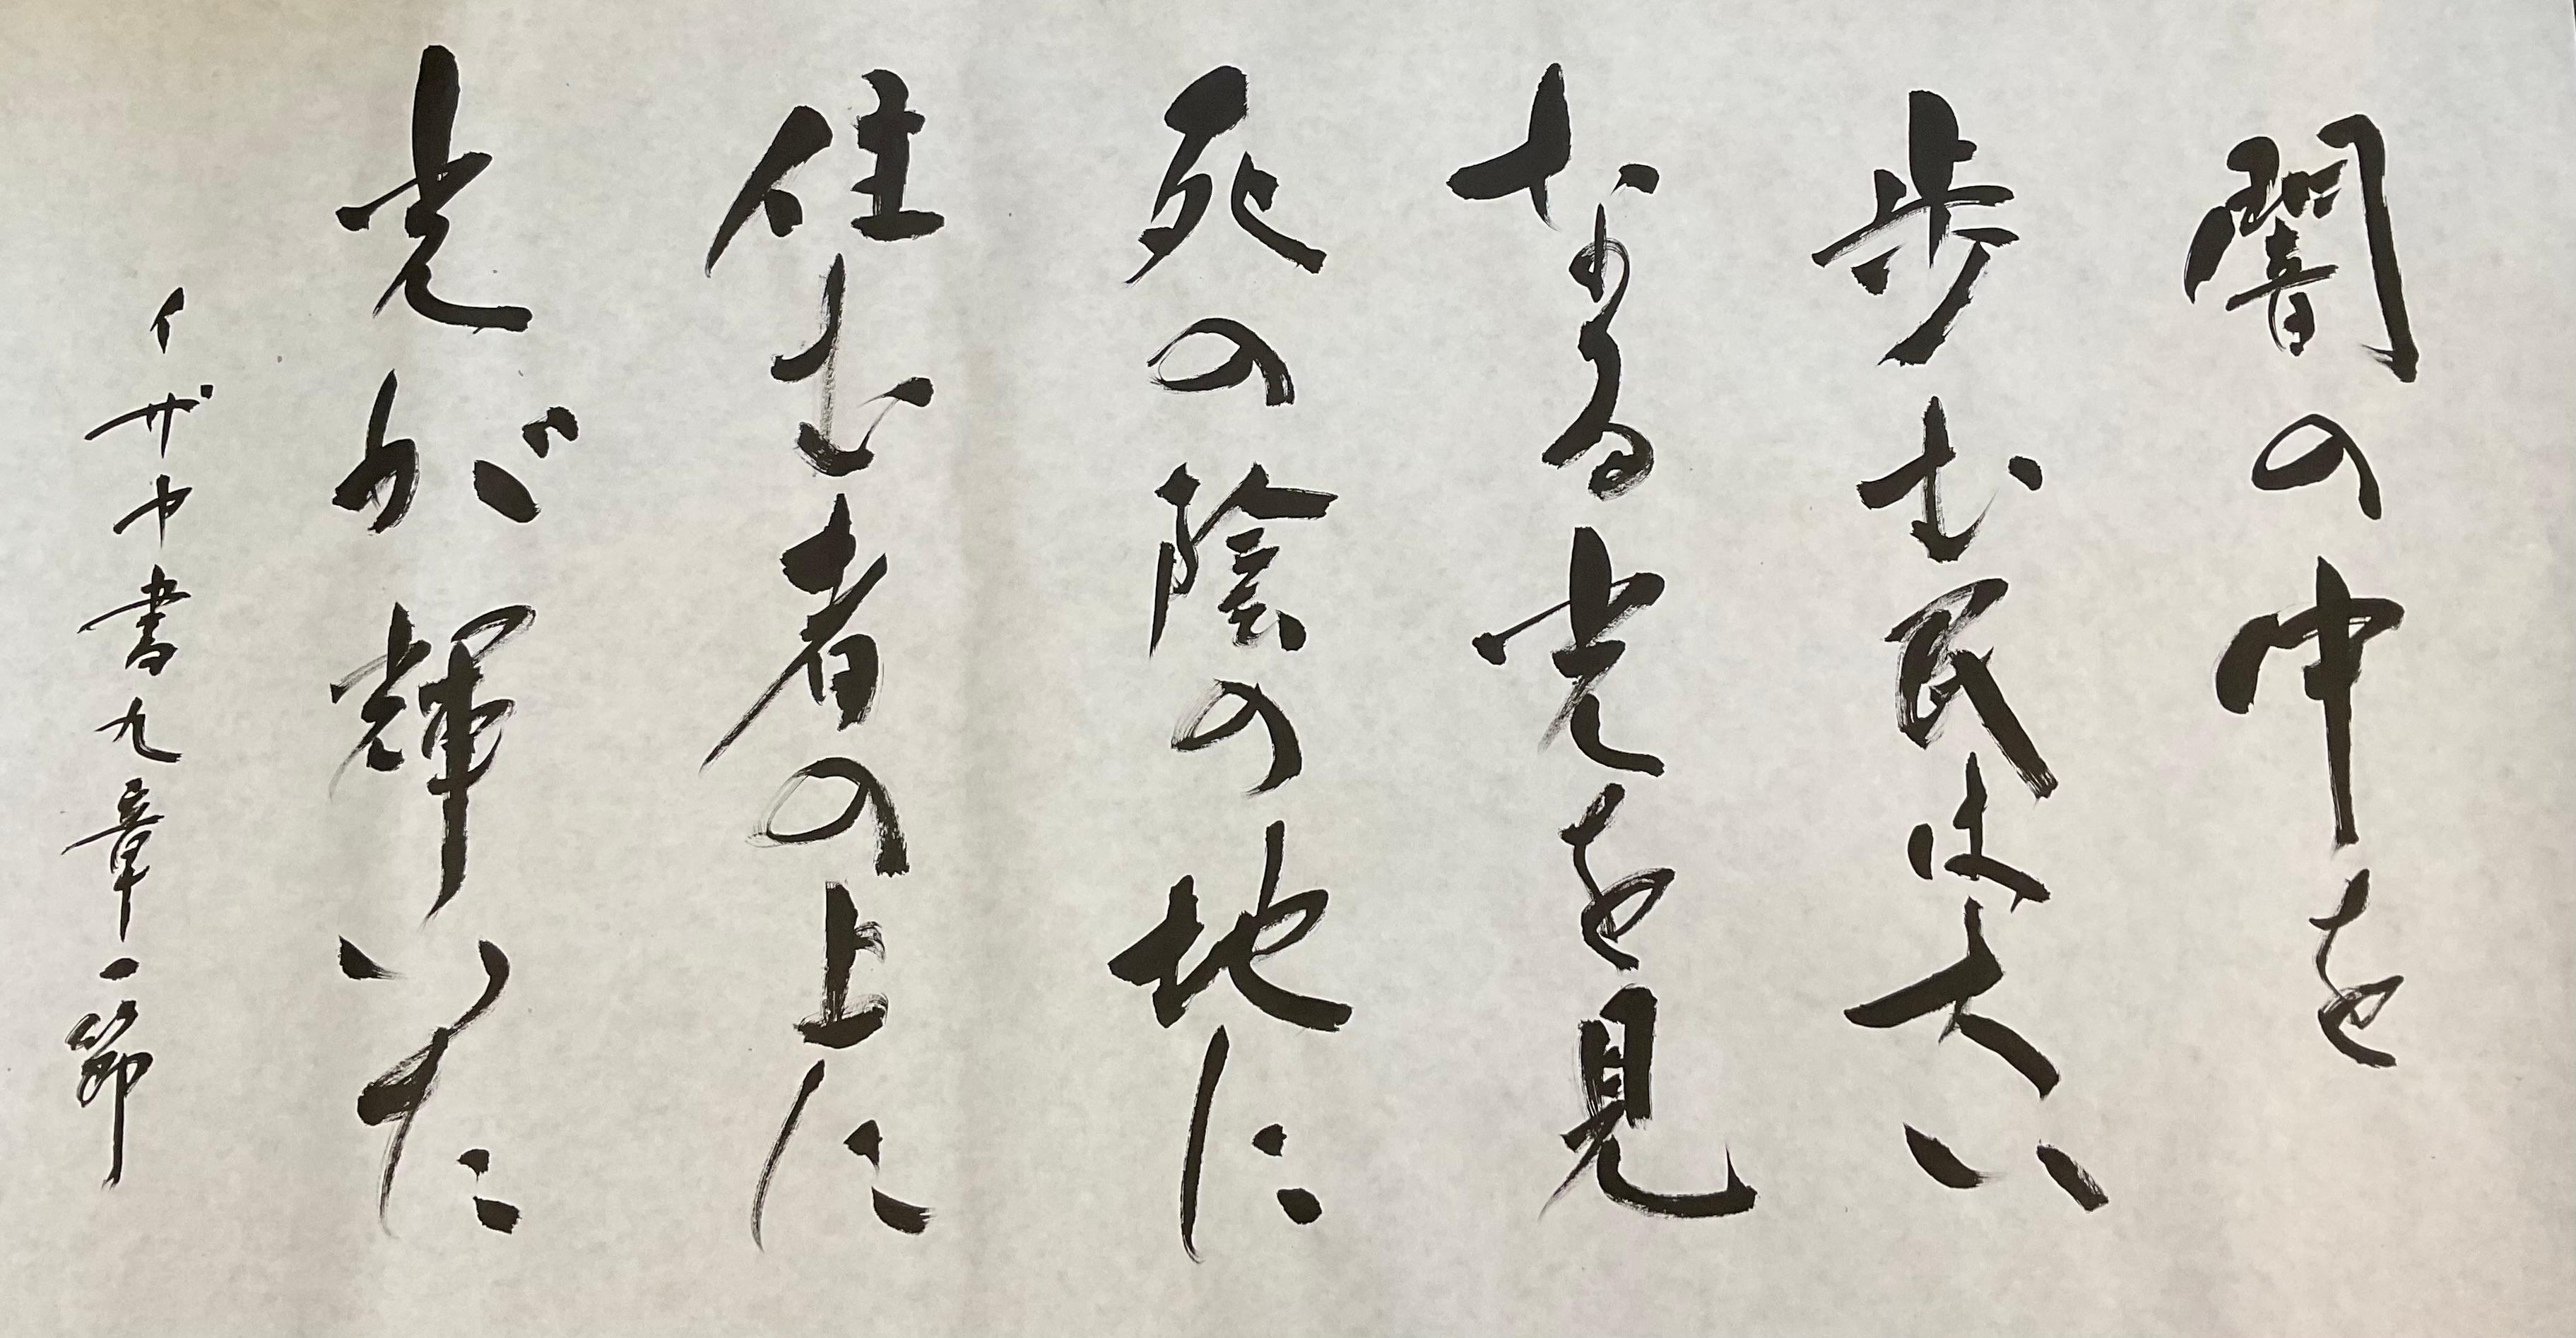 闇の中を
歩む民は大い
なる光を見
死の陰の地に
住む者の上に
光が輝いた
イザヤ書九章一節